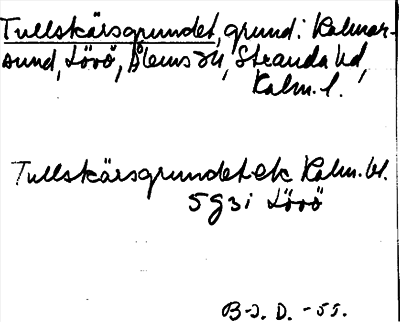 Tullskärsgrundet, grund i Kalmar-
sund, Lövö, Ålems sn, Stranda hd,
Kalm. l.
Tullskärsgrundet ek Kalm. bl.
5g3i Lövö
B-J. D. -55.